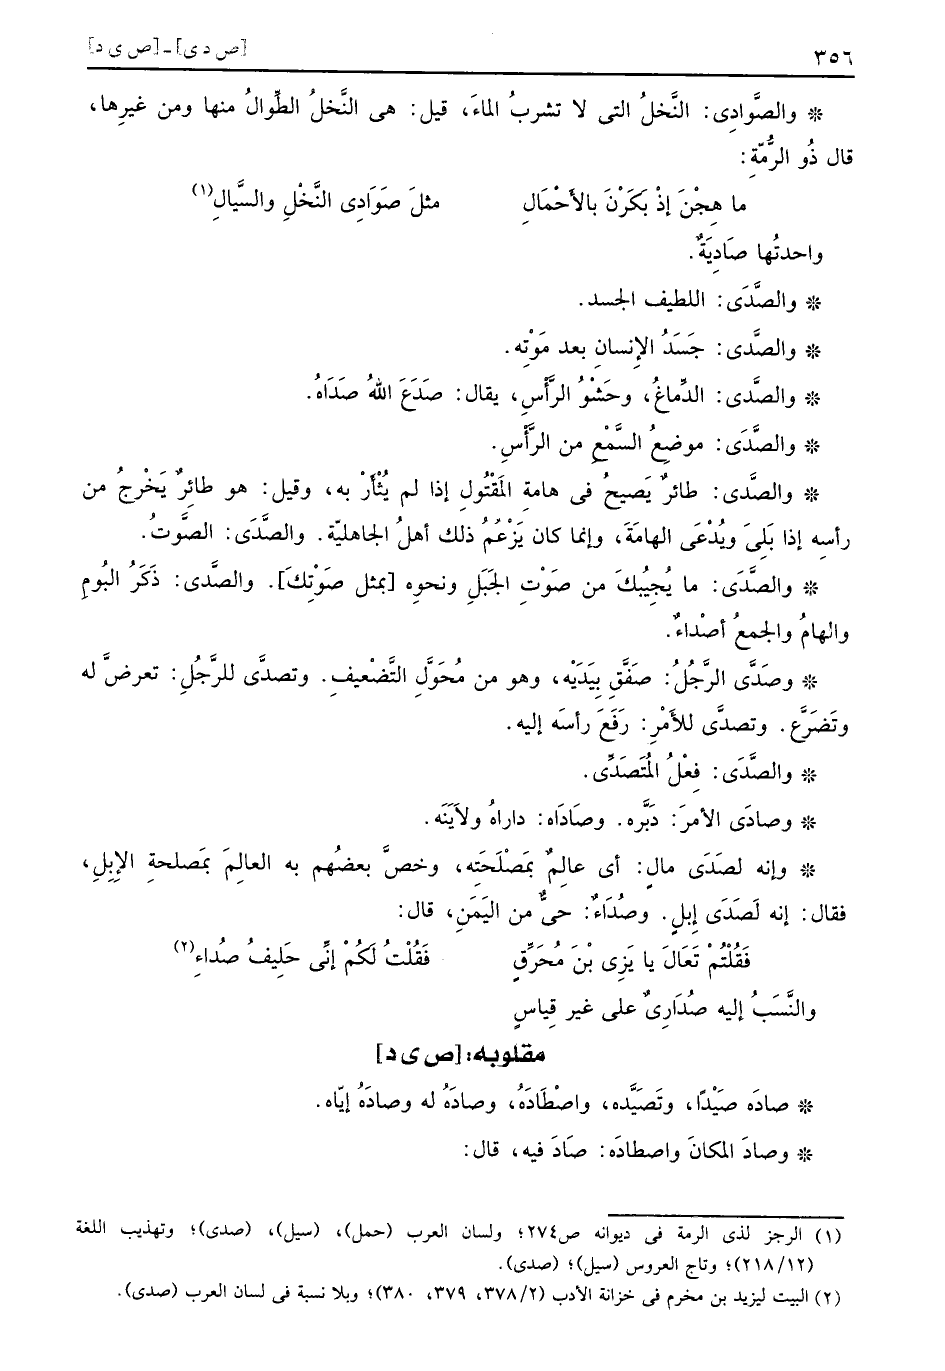 ٣٥٦ [ص د ى] - [ص ى د]
* والصَّوادِى: النَّخلُ التى لا تشربُ الماءَ، قيل: هى النَّخلُ الطِّوالُ منها ومن غيرِها،
قال ذُو الرُّمّةِ:
ما هِجْنَ إذْ بَكَرْنَ بالأَحْمَالِ مثلَ صَوَادِى النَّخْلِ والسَّيالِ(١)
واحدتُها صَادِيَةٌ.
* والصَّدَى: اللطيف الجسد.
* والصَّدَى: جَسَدُ الإنسانِ بعد مَوْتِه.
* والصَّدَى: الدِّماغُ، وحَشْوُ الرَّأْسِ، يقال: صَدَعَ اللهُ صَدَاهُ.
* والصَّدَى: موضِعُ السَّمْعِ من الرَّأْسِ.
* والصَّدَى: طائرٌ يَصيحُ فى هامةِ المَقْتُولِ إذا لم يُثْأَرْ به، وقيل: هو طائِرٌ يَخْرجُ من
رأسِه إذا بَلِىَ ويُدْعَى الهامَةَ، وإنما كان يَزْعُمُ ذلك أهلُ الجاهليّة. والصَّدَى: الصَّوتُ.
* والصَّدَى: ما يُجِيبُكَ من صَوْتِ الجَبَلِ ونحوِه [بمثل صَوْتِكَ]. والصَّدى: ذَكَرُ البُومِ
والهامُ والجمعُ أصْداءٌ.
* وصَدَّى الرَّجُلُ: صَفَّقِ بِيَدَيْه، وهو من مُحَوَّلِ التَّضْعيفِ. وتصدَّى للرَّجُلِ: تعرضَّ له
وتَضَرَّع. وتصدَّى للأَمْرِ: رَفَعَ رأسَه إليه.
* والصَّدَى: فِعْلُ المُتَصَدِّى.
* وصادَى الأمرَ: دَبَّره. وصَادَاه: داراهُ ولاَيَنَه.
* وإنه لصَدَى مالٍ: أى عالِمٌ بمَصْلَحَتِه، وخصَّ بعضُهم به العالِمَ بمَصلحةِ الإبِلِ،
فقال: إنه لَصَدَى إبلٍ. وصُدَاءٌ: حىٌّ من اليَمَنِ، قال:
فَقُلْتُمْ تَعَالَ يا يَزِى بْنَ مُحَرِّقٍ فَقُلْتُ لَكُمْ إنِّى حَلِيفُ صُداءِ(٢)
والنَّسَبُ إليه صُدَارِىٌ على غير قِياسٍ
مقلوبه: [ص ى د]
* صادَه صَيْدًا، وتَصَيَّده، واصْطَادَهُ، وصادَهُ له وصادَهُ إيّاه.
* وصادَ المكانَ واصطادَه: صَادَ فيه، قال:
(١) الرجز لذى الرمة فى ديوانه ص٢٧٤؛ ولسان العرب (حمل)، (سيل)، (صدى)؛ وتهذيب اللغة
(٢١٨/١٢)؛ وتاج العروس (سيل)؛ (صدى).
(٢) البيت ليزيد بن مخرم فى خزانة الأدب (٣٧٨/٢، ٣٧٩، ٣٨٠)؛ وبلا نسبة فى لسان العرب (صدى).